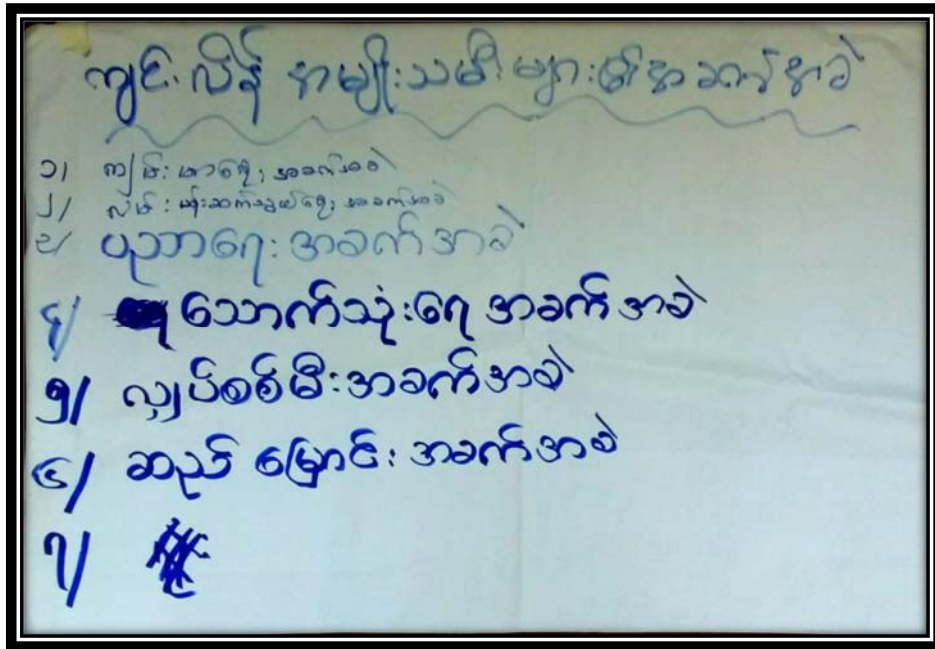 ကျင်းလိန် အမျိုးသမီး များ၏အခက်အခဲ
၁/ ကျမ်းမာရေး အခက်အခဲ
၂/ လမ်းပန်းဆက်သွယ်ရေး အခက်အခဲ
၃/ ပညာရေး အခက်အခဲ
၄/ သောက်သုံးရေ အခက်အခဲ
၅/ လျှပ်စစ်မီး အခက်အခဲ
၆/ ဆည် မြောင်း အခက်အခဲ
၇/